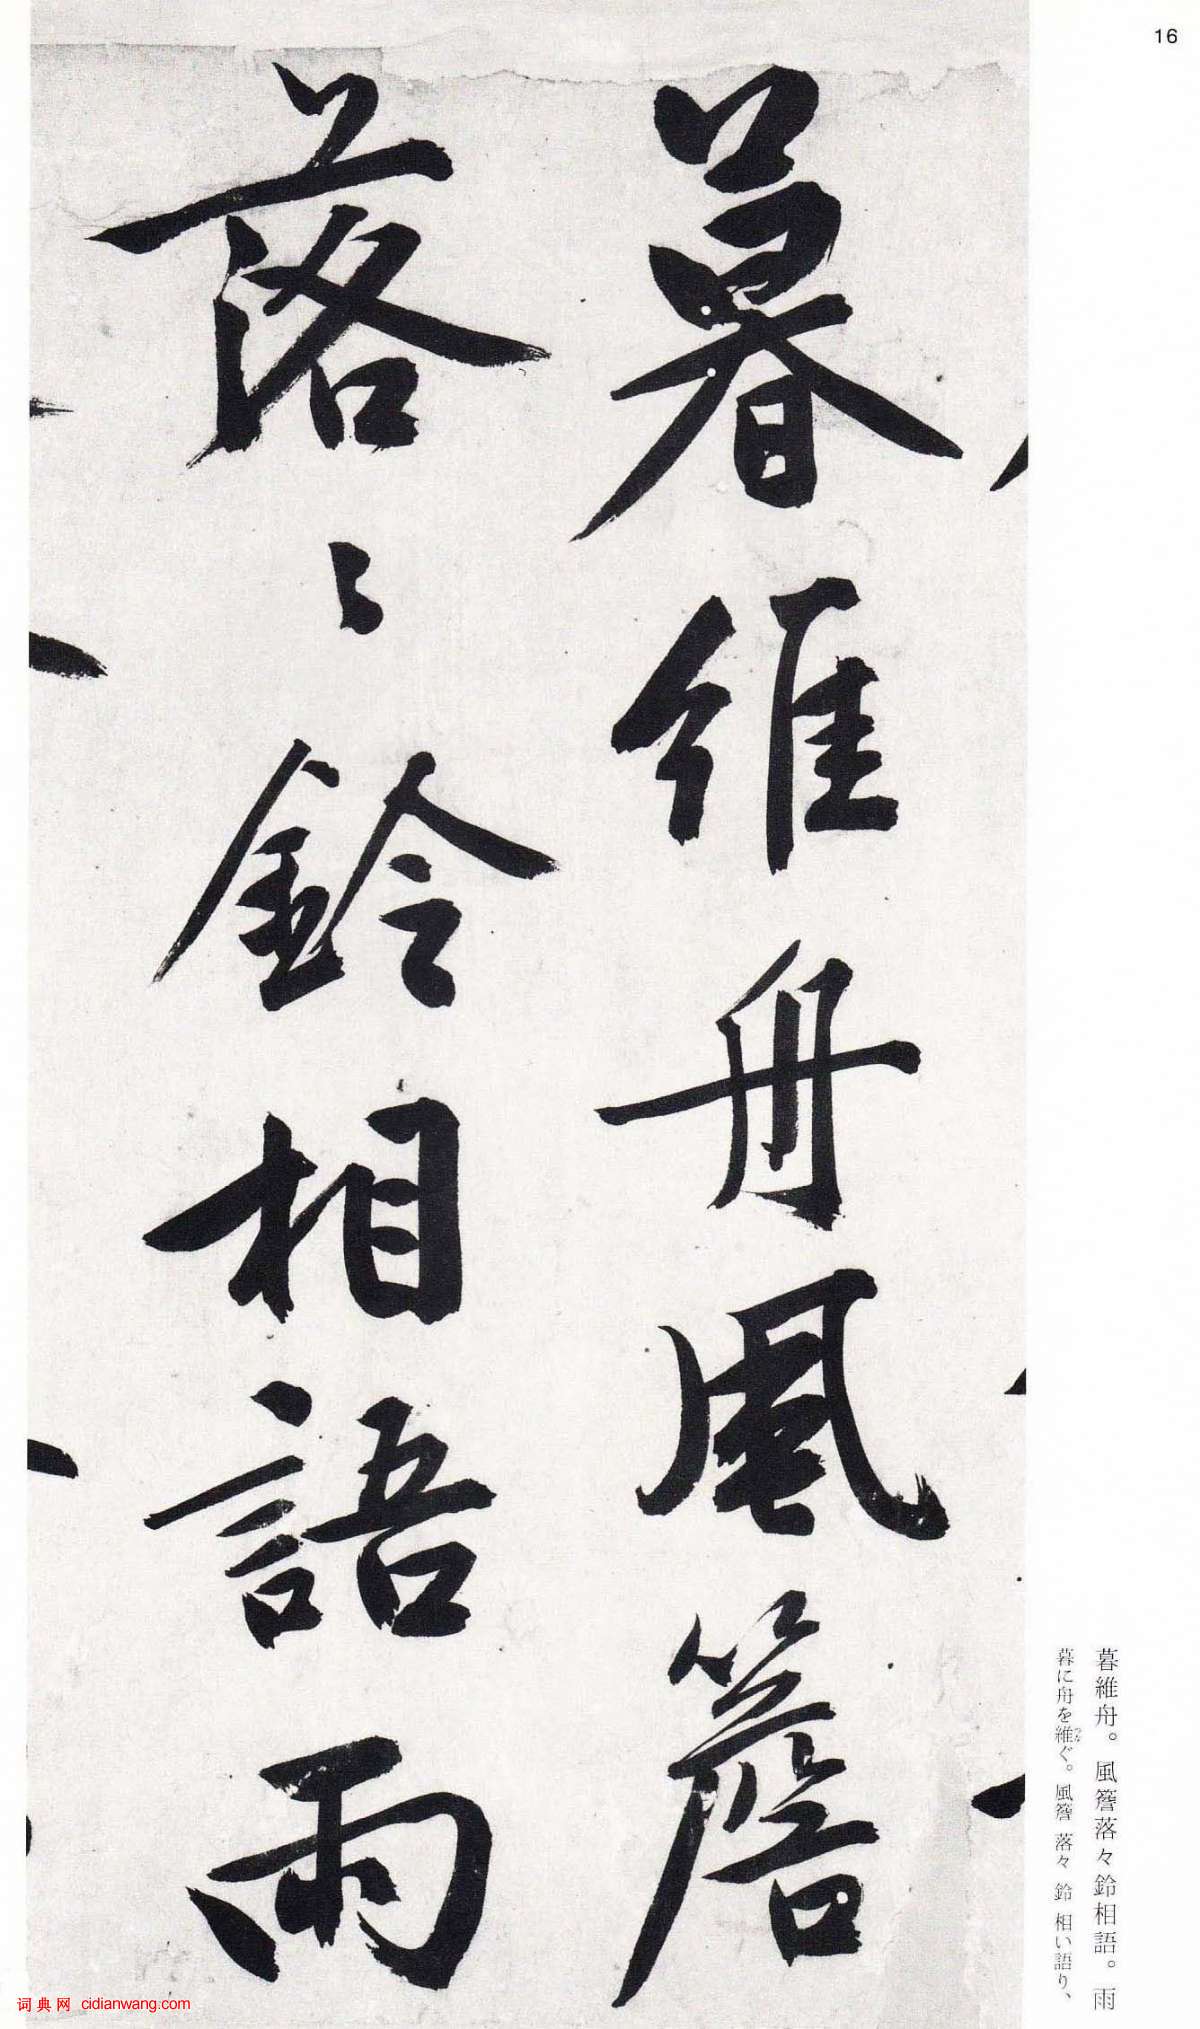 16
暮維舟風簷
落〻鈴相語雨
暮維舟。風簷落々鈴相語。雨
暮に舟を維ぐ。風簷 落々 鈴 相い語り、
つな
词典网 cidianwang.com